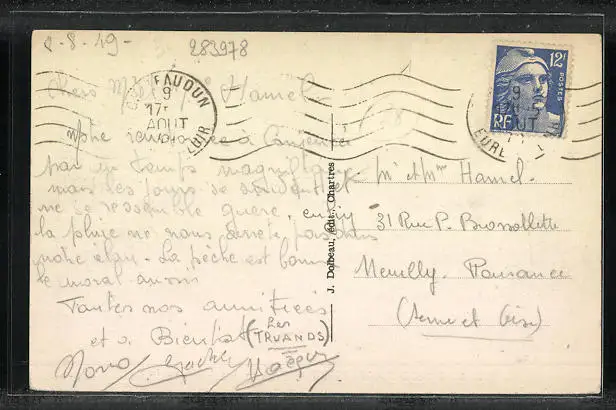 2-8-49-
283978
Chers Mr et Mme Hamel
Notre
par un temps magnifique
mais les jours se suivent et
ne se ressemble guère,
la pluie ne nous arrete pas dans
notre élan - La pêche est bonne
le moral aussi
Toutes nos amitiées
et à Bientot (Les TRUANDS)
CHATEAUDUN
9
17
AOUT
LOIR
12F
POSTES
RF
9
EURE
J. Dolbeau, édit., Chartres
Mr et Mme Hamel.
31 Rue P. Brossollette
Neuilly. Plaisance
(Seine et Oise)